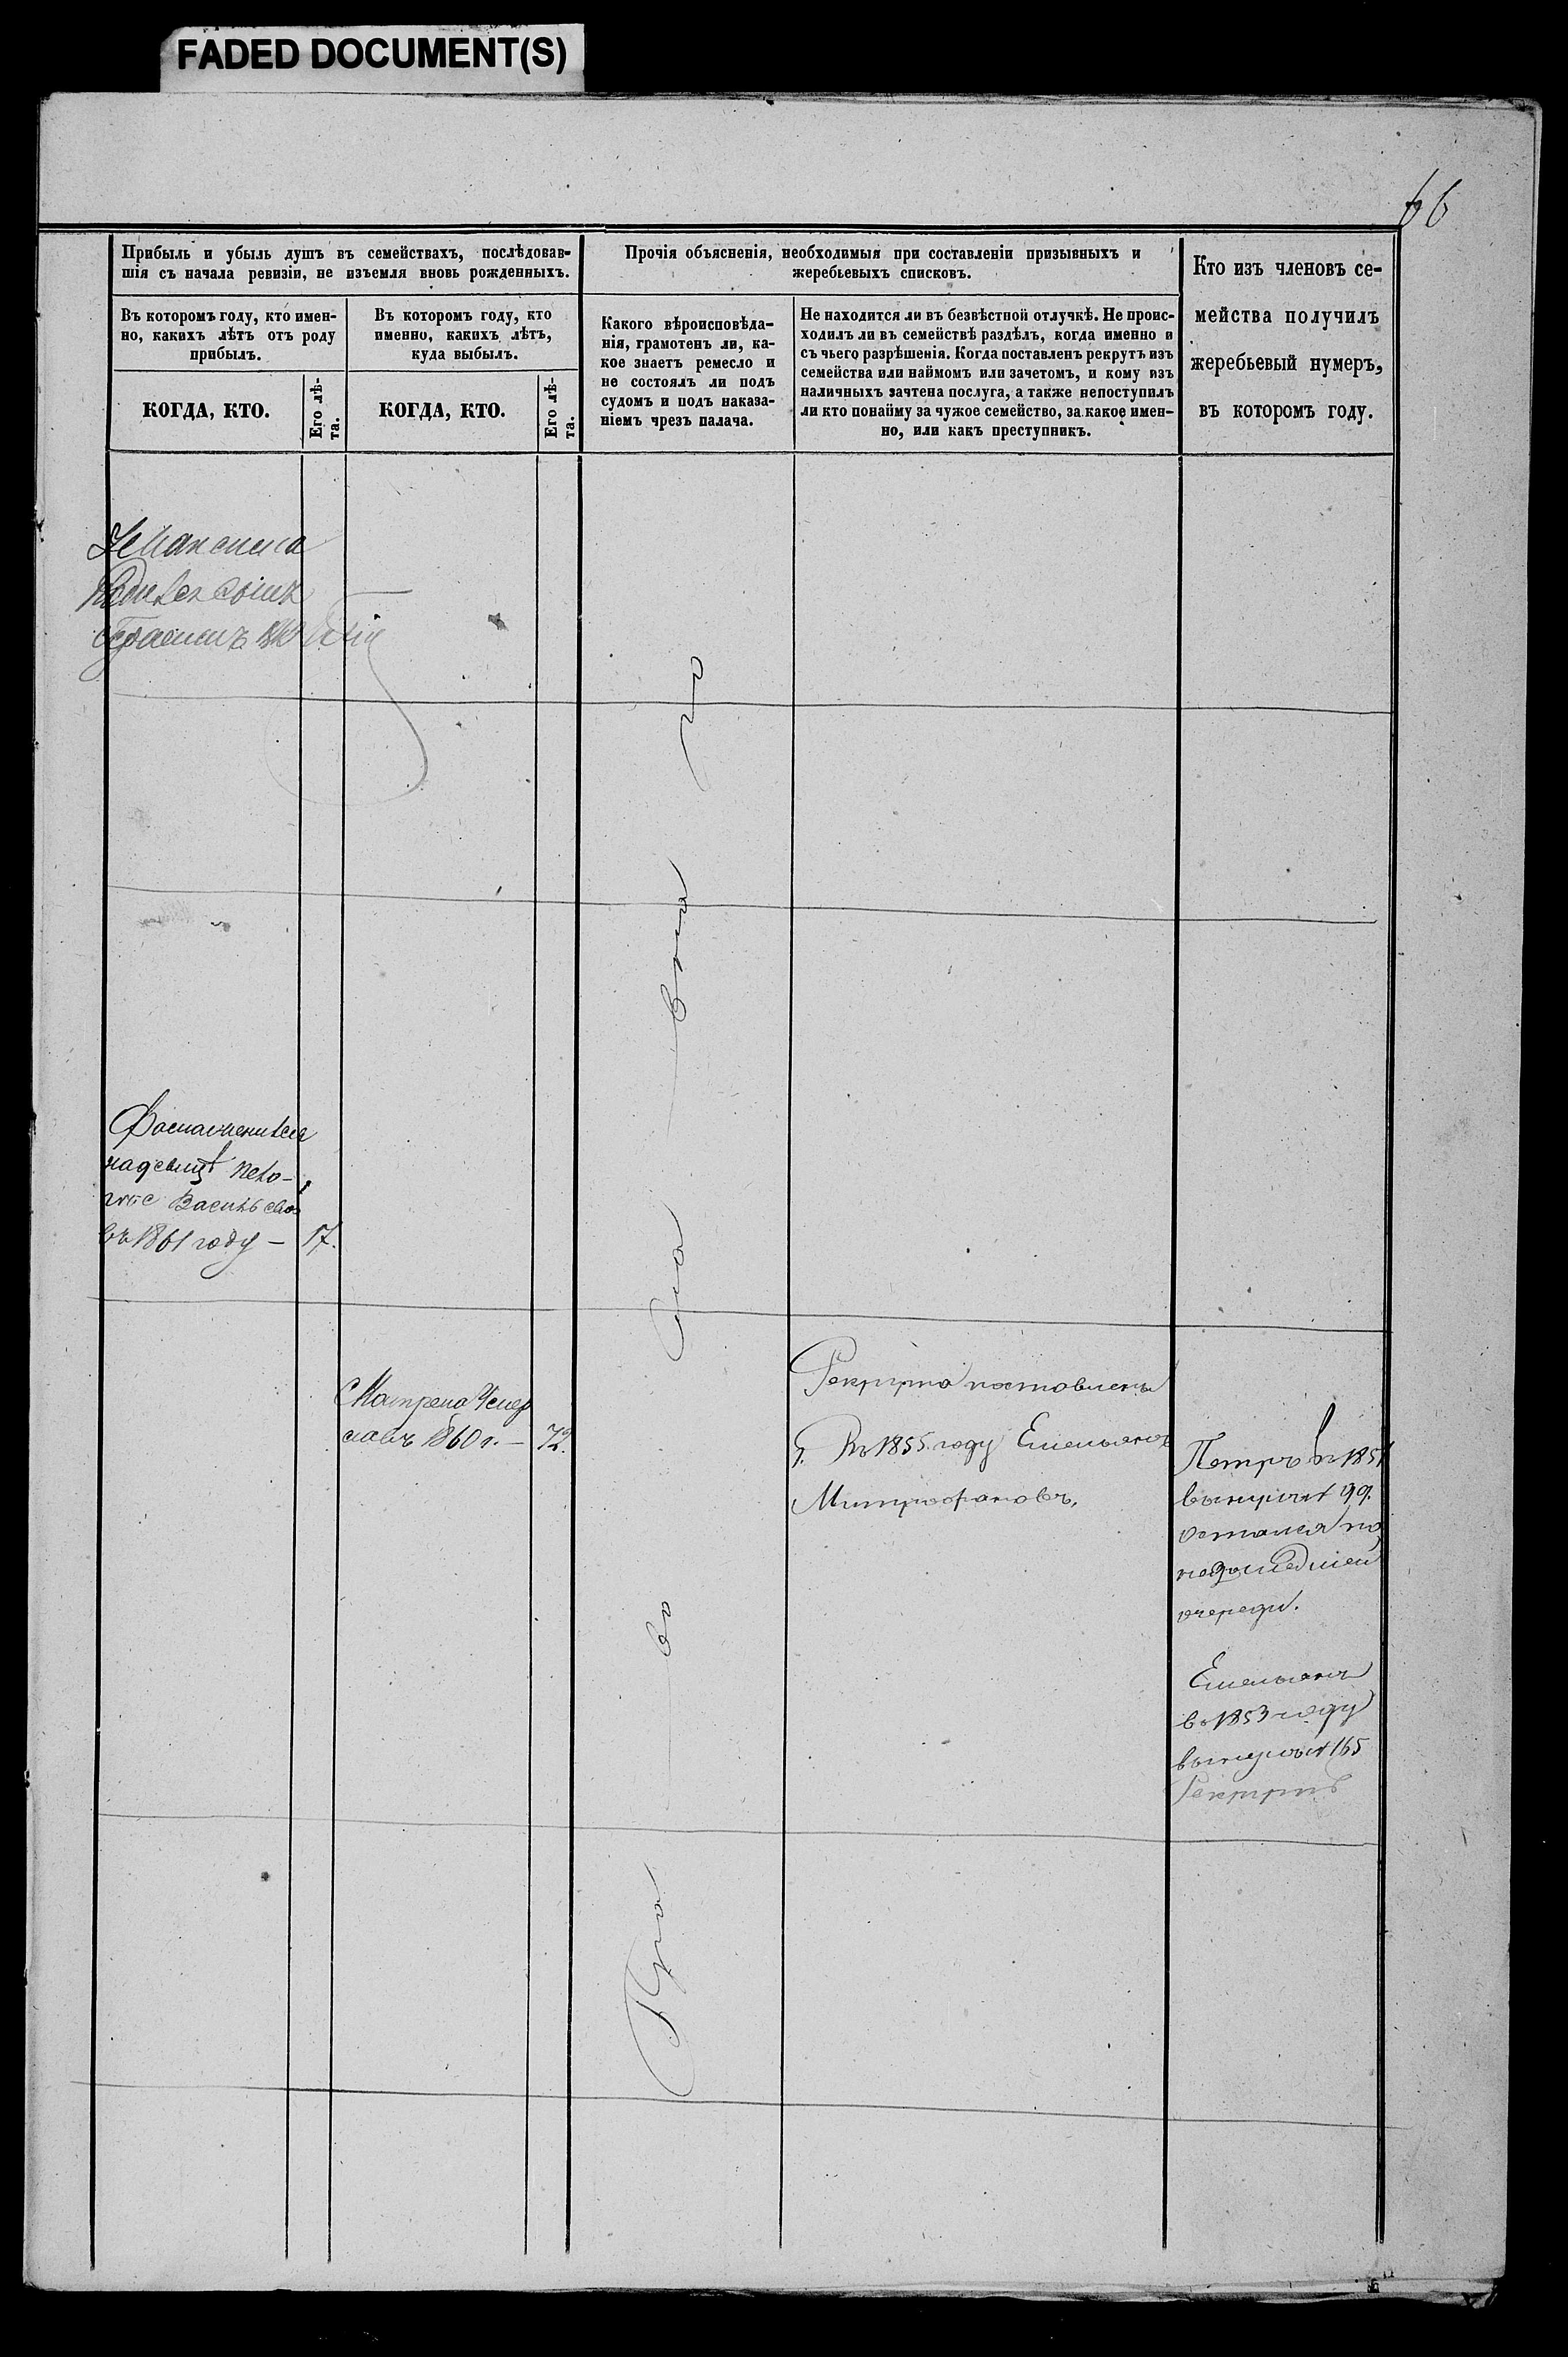 FADED DOCUMENT(S)
66
Прибыль и убыль душъ въ семействахъ, послѣдовав-
шія съ начала ревизіи, не изъемля вновь рожденныхъ.
Въ которомъ году, кто имен-
но, какихъ лѣтъ отъ роду
прибылъ.
КОГДА, КТО.
Его лѣ-
та.
Въ которомъ году, кто
именно, какихъ лѣтъ,
куда выбылъ.
КОГДА, КТО.
Его лѣ-
та.
Прочія объясненія, необходимыя при составленіи призывныхъ и
жеребьевыхъ списковъ.
Какого вѣроисповѣда-
нія, грамотенъ ли, ка-
кое знаетъ ремесло и
не состоялъ ли подъ
судомъ и подъ наказа-
ніемъ чрезъ палача.
Не находится ли въ безвѣстной отлучкѣ. Не проис-
ходилъ ли въ семействѣ раздѣлъ, когда именно и
съ чьего разрѣшенія. Когда поставленъ рекрутъ изъ
семейства или наймомъ или зачетомъ, и кому изъ
наличныхъ зачтена послуга, а также непоступилъ
ли кто понайму за чужое семейство, за какое имен-
но, или какъ преступникъ.
Кто изъ членовъ се-
мейства получилъ
жеребьевый нумеръ,
въ которомъ году.
У Максима
родился сынъ
въ 1861 году — 17.
Матрена
1860 г. — 72.
Рекрута поставлены
въ 1855 году Емельянъ
Митрофановъ.
Петръ въ 1851
вынулъ № 99.
остался по
недошедшей
очереди.
Емельянъ
въ 1853 году
вынулъ № 165
Рекрутъ
Пра
во
сла
вна
го